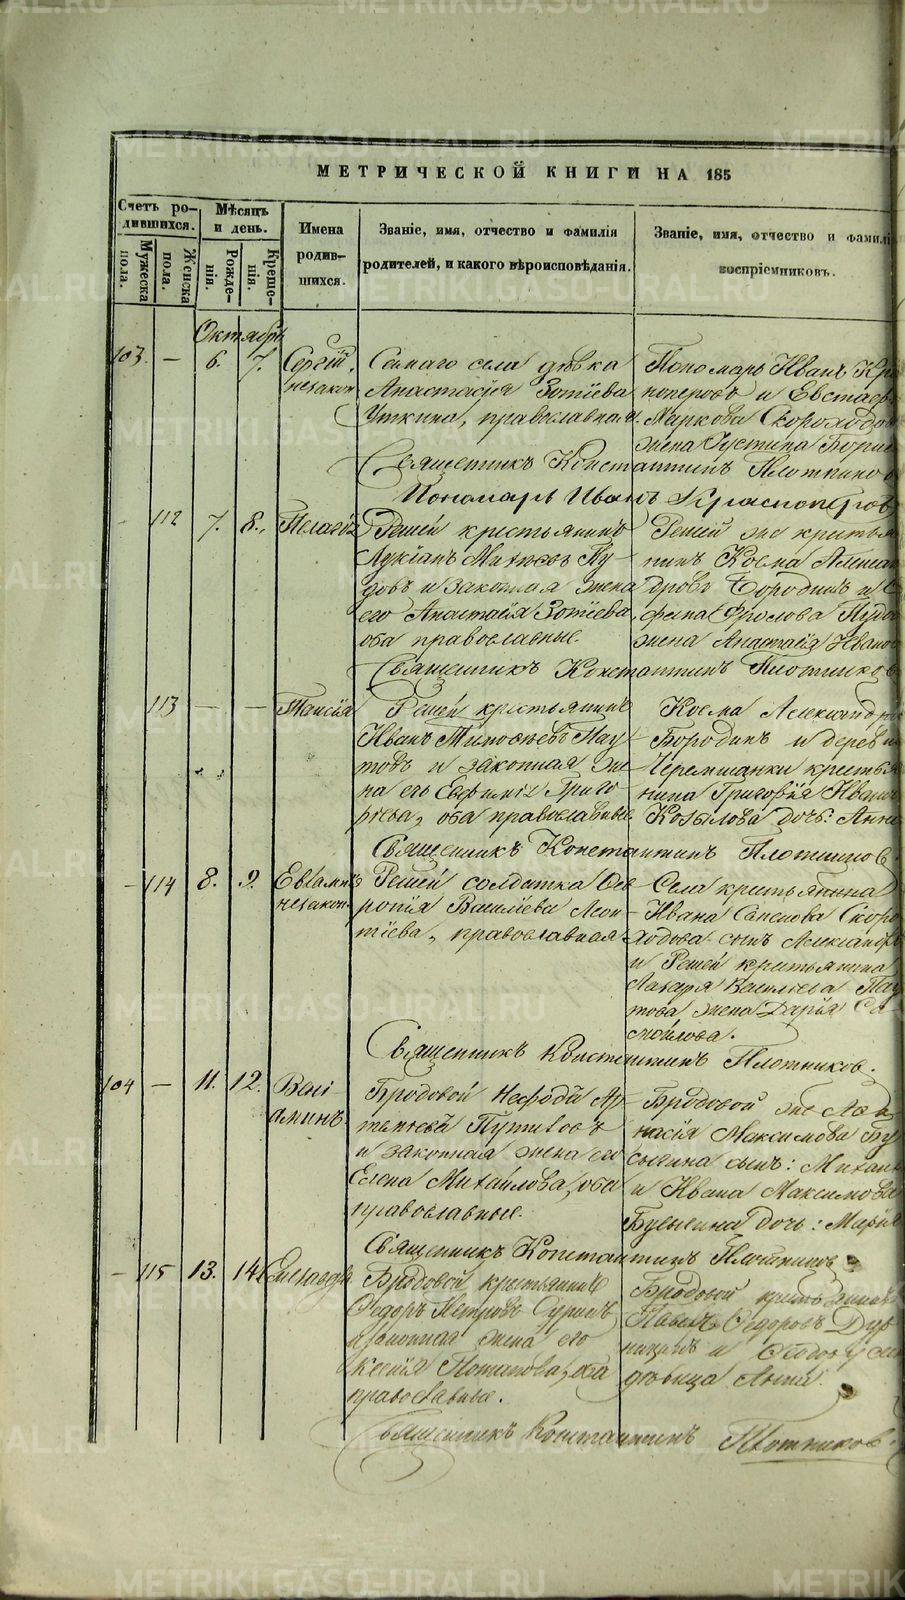 МЕТРИЧЕСКОЙ КНИГИ НА 185
Счетъ ро-
дившихся.
Мужеска
пола.
Женска
пола.
Мѣсяцъ
и день.
Рожде-
нія.
Креще-
нія.
Имена
родив-
шихся.
Званіе, имя, отчество и фамилія
родителей, и какого вѣроисповѣданія.
Званіе, имя, отчество и фамилі
воспріемниковъ.
Октябрь
103. — 6. 7. Сергій,
незакон
Селнаго села дѣвка
Анастасія Зотіева
Уткина, православная.
Пономарь Иванъ Кра
ноперовъ и Евстаф
Маркова Скороходо
жена Іустина Борис
Священникъ Константинъ Плотников
Пономарь Иванъ Красноперов
- 112 7. 8. Пелагія
Решей крестьянинъ
Лукіанъ
въ и законная жена
его Анастасія Зотіева
оба православные.
Решей же крестья
нинъ Косма Алексан
дровъ Бородинъ и
Фролова
жена Анастасія Иванов
Священникъ Константинъ Плотников
113 — — Таисія
Решей крестьянинъ
Иванъ Тимофѣевъ Пау
товъ и законная же
на его Евфимія Григо
рьева, оба православные
Косма Александро
Бородинъ и деревни
Черемшанки крестья
нина Григорія Иван
Козылова дочь: Анн
Священникъ Константинъ Плотников.
- 114 8. 9. Евламп
незакон.
Решей солдатка
Васильева Леон
тіева, православная
Села крестьянина
Ивана Скоро
ходова сынъ Александр
и Решей крестьянина
Лазаря Васильева Пау
това жена Дарія Са
мойлова.
Священникъ Константинъ Плотников.
104 — 11. 12. Вені
аминъ
Бродовой Нефодъ Ар
темьевъ Путиловъ
и законная жена его
Елена Михайлова, оба
православные.
Бродовой же Афа
насія Максимова Бу
сыгина сынъ: Михаил
и Ивана Максимова
Бусыгина дочь: Марія
Священникъ Константинъ Плотников
- 115 13. 14 Елисавета
Бродовой крестьянинъ
Ѳедоръ Петровъ
и законная жена его
Ксенія Потапова, оба
православные.
Бродовой крестьянинъ
Павелъ Ѳедоровъ
и
дѣвица Анна
Священникъ Константинъ Плотников.
METRIKI.GASO-URAL.RU